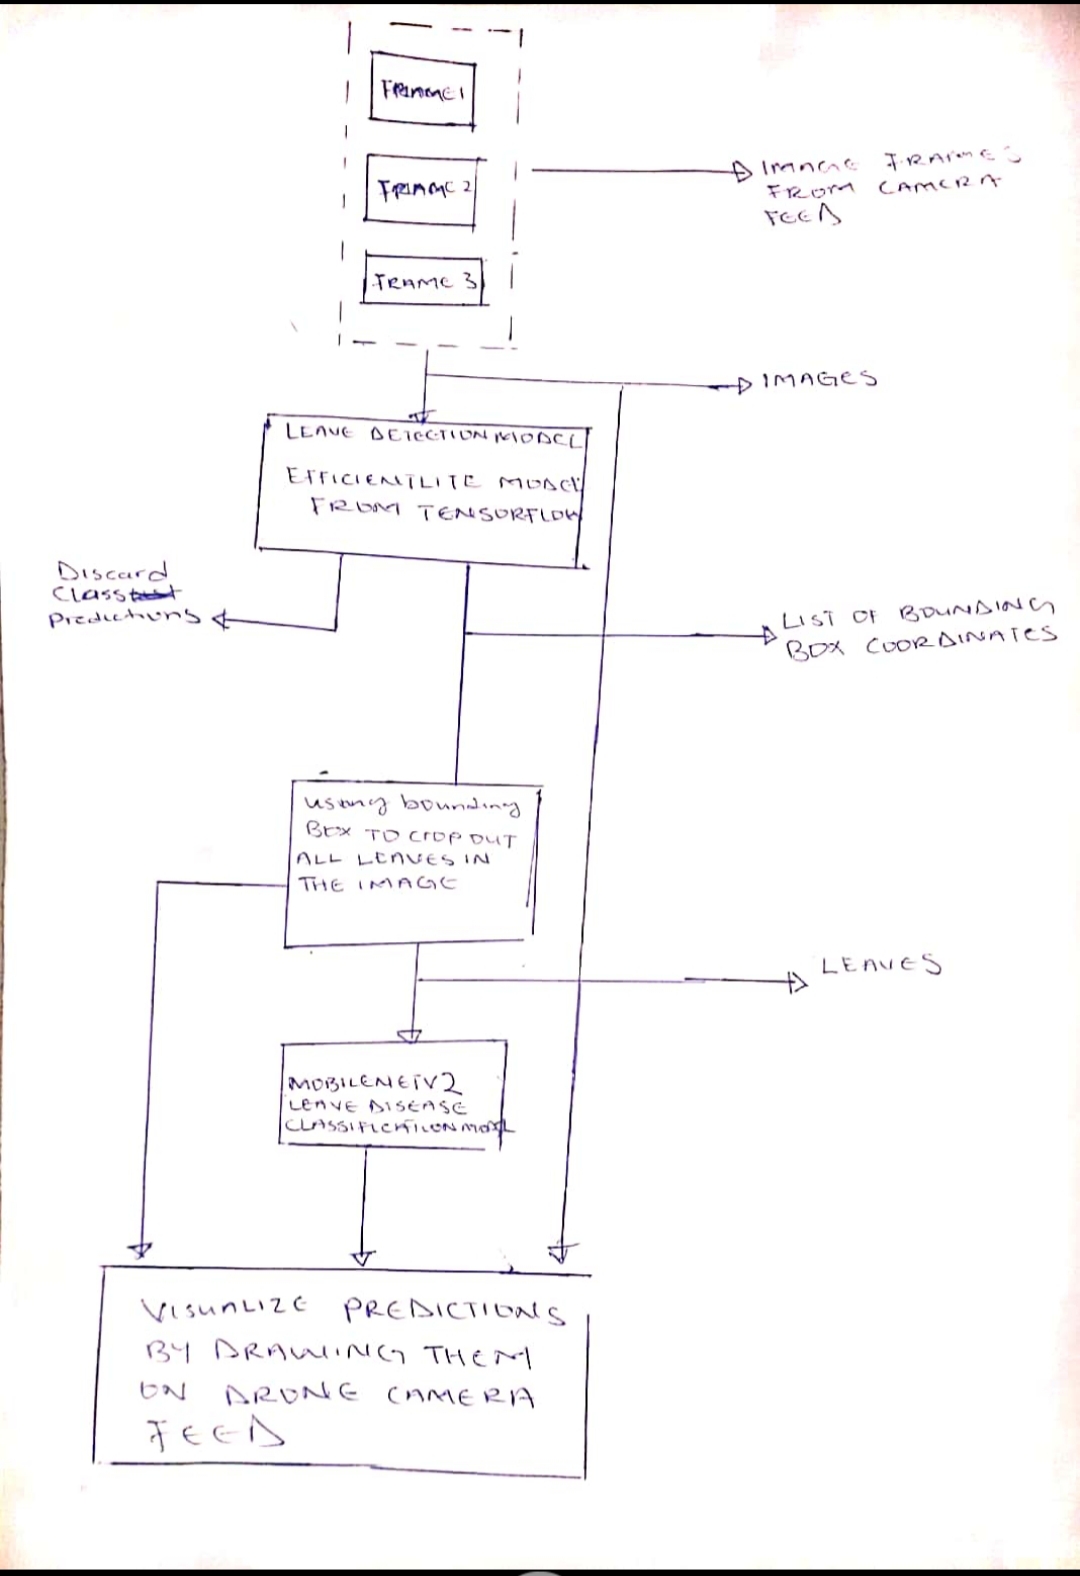 FRAME 1
FRAME 2
IMAGE FRAMES
FROM CAMERA
FEED
FRAME 3
IMAGES
LEAVE DETECTION MODEL
EFFICIENTLITE MODEL
FROM TENSORFLOW
Discard
Class
Predictions
LIST OF BOUNDING
BOX COORDINATES
using bounding
BOX TO CROP OUT
ALL LEAVES IN
THE IMAGE
LEAVES
MOBILENETV2
LEAVE DISEASE
CLASSIFICATION MODEL
VISUALIZE PREDICTIONS
BY DRAWING THEM
ON DRONE CAMERA
FEED